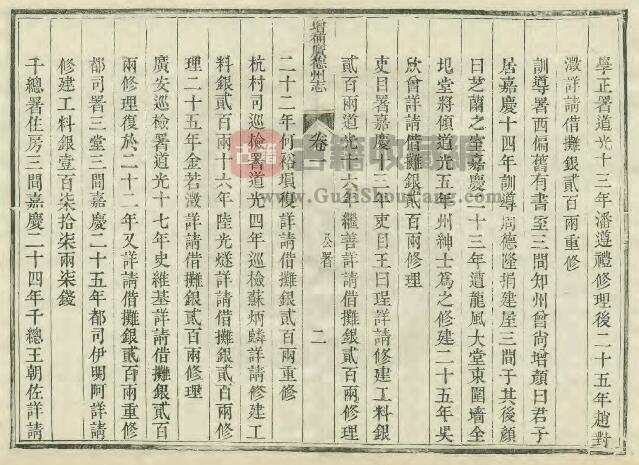 學正署道光十三年潘遵禮修理後二十五年趙對
澂詳請借攤銀貳百兩重修
訓導署西偏舊有書室三間知州曾尚增顏曰君子
居嘉慶十四年訓導周德隆捐建屋三間于其後顏
曰芝蘭之室嘉慶二十三年遭龍風大堂東圍墻全
圮堂將傾道光五年州紳士為之修建二十五年吳
欣曾詳請借攤銀貳百兩修理
吏目署嘉慶十三年吏目王曰珵詳請修建工料銀
貳百兩道光十六年繼善詳請借攤銀貳百兩修理
增補廣德州志
卷
公署
二
二十二年何裕塤復詳請借攤銀貳百兩重修
杭村司巡檢署道光四年巡檢蘇炳麟詳請修建工
料銀貳百兩十六年陸光燧詳請借攤銀貳百兩修
理二十五年金若澂詳請借攤銀貳百兩修理
廣安巡檢署道光十七年史維基詳請借攤銀貳百
兩修理復於二十二年又詳請借攤銀貳百兩重修
都司署三堂三間嘉慶二十五年都司伊明阿詳請
修建工料銀壹百柒拾柒兩柒錢
千總署住房三間嘉慶二十四年千總王朝佐詳請
古籍
古籍收藏網
www.GuJiShouCang.com